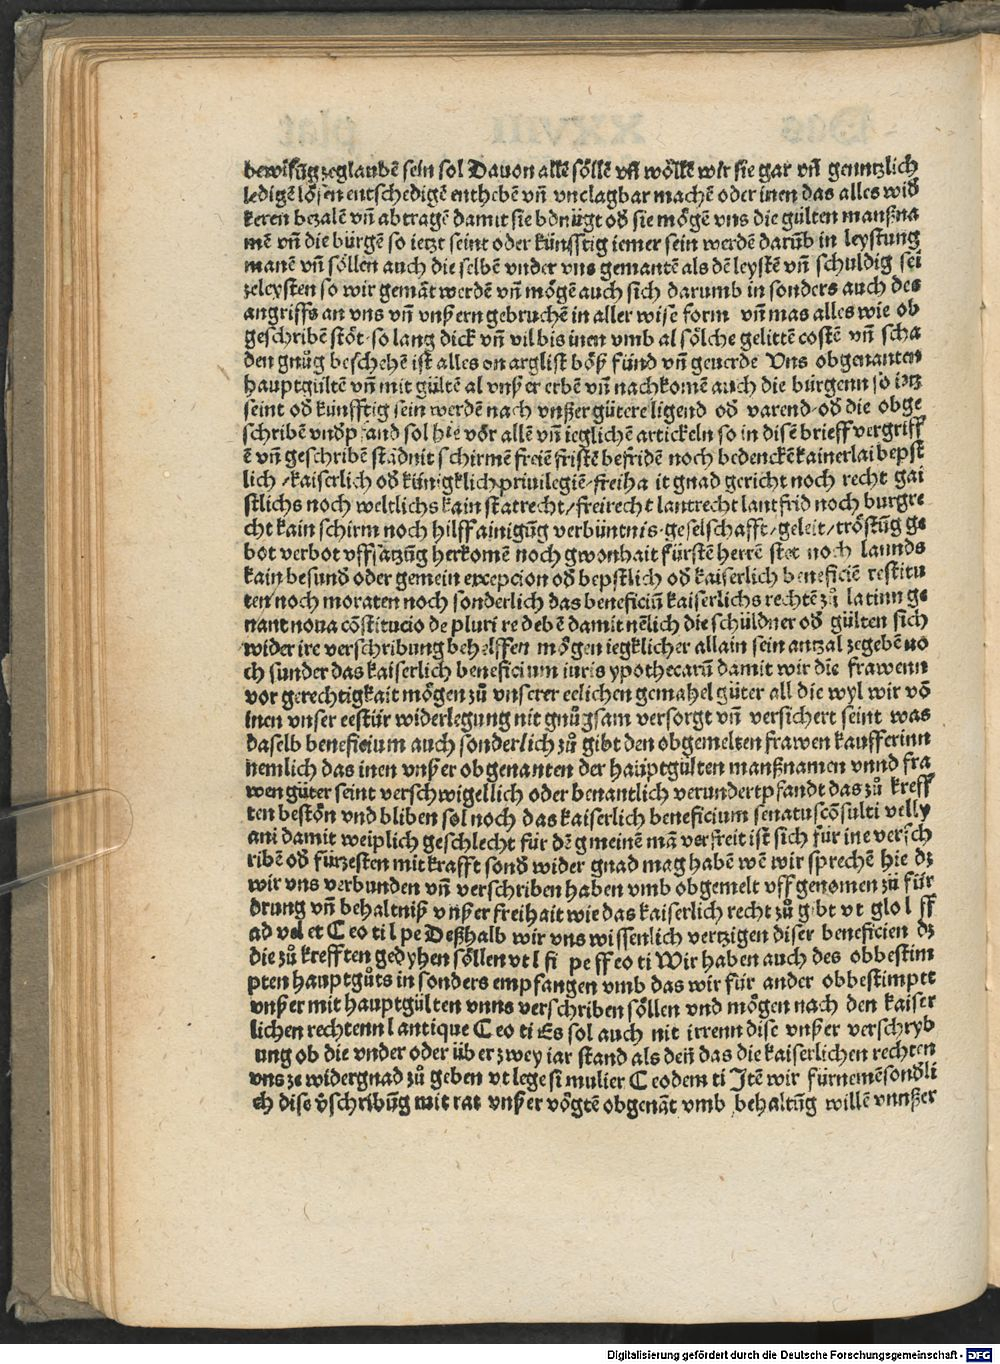 bewisūg zeglaubē sein sol Dauon allē söllē vñ wöllē wir sie gar vñ genntzlich
ledigē lösen entschedigē enthebē vñ vnclagbar machē oder inen das alles wid
keren bezalē vñ abtragē damit sie bönügt od sie mögē vns die gülten manßna
mē vñ die bürgē so ietzt seint oder künfftig iemer sein werdē darūb in leystung
manē vñ söllen auch die selbē vnder vns gemantē als dē leystē vñ schuldig sei
zeleysten so wir gemāt werdē vñ mögē auch sich darumb in sonders auch des
angriffs an vns vñ vnßern gebruchē in aller wise form vñ mas alles wie ob
geschribē stöt so lang dick vñ vil bis inen vmb al sölche gelittē costē vñ scha
den gnůg beschehē ist alles on arglist böß fünd vñ geuerde Vns obgenanten
hauptgültē vñ mit gültē al vnßer erbē vñ nachkomē auch die bürgenn so ietz
seint od künfftig sein werdē nach vnßer gütere ligend od varend od die obge
schribē vndpfand sol hie vör allē vñ ieglichē artickeln so in disē brieff vergriff
ē vñ geschribē städnit schirmē freiē fristē befridē noch bedenckē kainerlai bepst
lich / kaiserlich od künigklich privilegiē / freiha it gnad gericht noch recht gai
stlichs noch weltlichs kain statrecht / freirecht lantrecht lantfrid noch burgre
cht kain schirm noch hilff ainigūg verbüntnis geselschafft / geleit / tröstūg ge
bot verbot vffsatzūg herkomē noch gwonhait fürstē herrē stet noch lannds
kain besund oder gemein excepcion od bepstlich od kaiserlich beneficiē restitu
ten noch moraten noch sonderlich das beneficiū kaiserlichs rechtē zů latinn ge
nant noua cōstitucio de pluri re debē damit nēlich die schüldner od gülten sich
wider ire verschribung behelffen mögen iegklicher allain sein antzal zegebē no
ch sunder das kaiserlich beneficium iuris ypothecarū damit wir die frawenn
vor gerechtigkait mögen zů vnserer eelichen gemahel güter all die wyl wir vō
inen vnser eestür widerlegung nit gnůgsam versorgt vñ versichert seint was
daselb beneficium auch sonderlich zů gibt den obgemelten frawen kaufferinn
nemlich das inen vnßer obgenanten der haüptgülten manßnamen vnnd fra
wen güter seint verschwigellich oder benantlich verundertpfandt das zů kreff
ten bestön vnd bliben sol noch das kaiserlich beneficium senatuscōsulti velly
ani damit weiplich geschlecht für dē gmeinē mā verfreit ist sich für ine versch
ribē od fürzesten mit krafft sond wider gnad mag habē wē wir sprechē hie dz
wir vns verbunden vñ verschriben haben vmb obgemelt vff genomen zů für
drung vñ behaltniß vnßer freihait wie das kaiserlich recht zů gibt vt glo l ff
ad vel et C eo ti l pe Deßhalb wir vns wissenlich vertzigen diser beneficien dz
die zů krefften gedyhen söllen vt l fi pe ff eo ti Wir haben auch des obbestim
pten hauptgůts in sonders empfangen vmb das wir für ander obbestimptt
vnßer mit hauptgülten vnns verschriben söllen vnd mögen nach den kaiser
lichen rechtenn l antique C eo ti Es sol auch nit irrenn dise vnßer verschryb
ung ob die vnder oder über zwey iar stand als deñ das die kaiserlichen rechten
vns ze widergnad zů geben vt lege si mulier C eodem ti Jtē wir fürnemē sondli
ch dise v̄schribūg mit rat vnßer vögtē obgenāt vmb behaltūg willē vnnßer
Digitalisierung gefördert durch die Deutsche Forschungsgemeinschaft - DFG